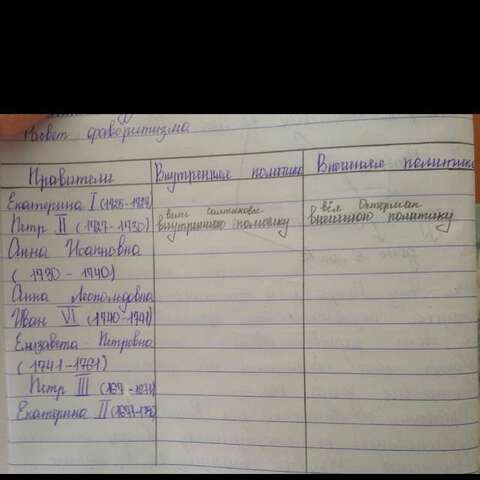 Расвет фаворитизма
Правители Внутренняя политика Внешняя политика
Екатерина I (1725-1727)
Петр II (1727-1730) вели внутреннюю политику вёл Остерман внешнюю политику
Анна Иоанновна
(1730 - 1740)
Анна Леопольдовна
Иван VI (1740-1741)
Елизавета Петровна
(1741-1761)
Петр III
Екатерина II